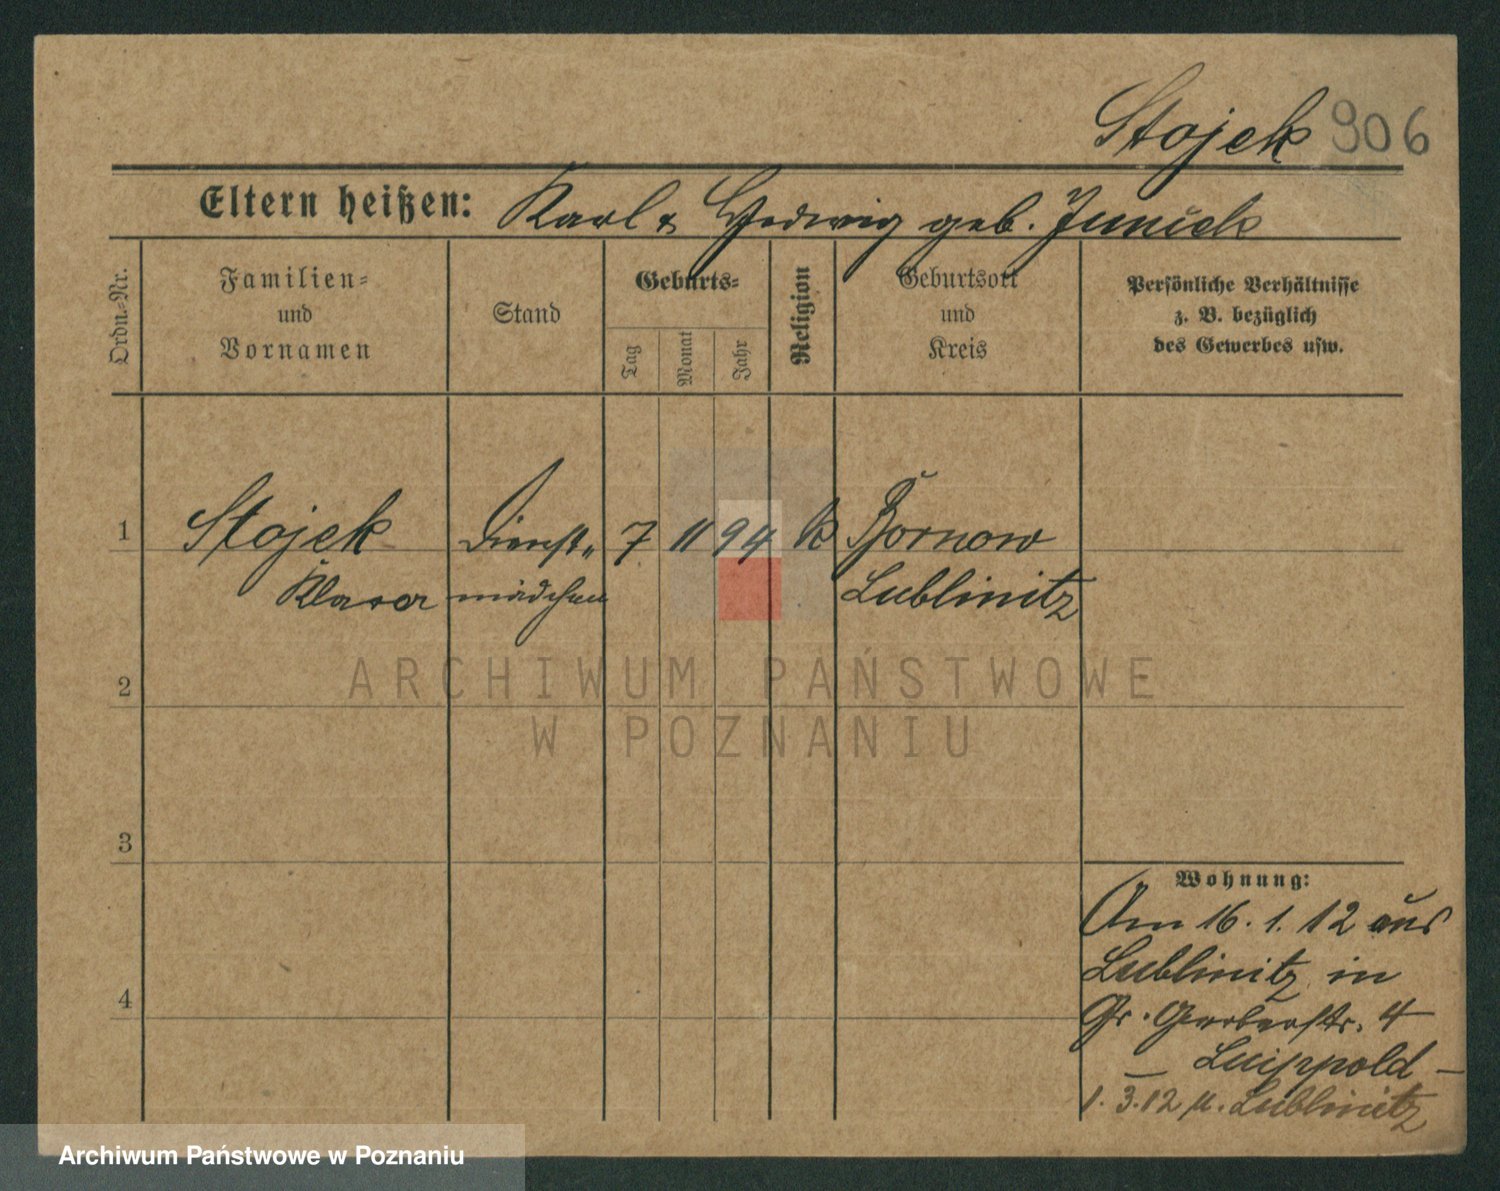 Stojek 906
Eltern heißen: Karl & Hedwig geb. Junick
Ordn.-Nr.
Familien-
und
Vornamen
Stand
Geburts-
Tag
Monat
Jahr
Religion
Geburtsort
und
Kreis
Persönliche Verhältnisse
z. B. bezüglich
des Gewerbes usw.
1 Stojek Dienst- 7 11 94 K
Klara mädchen Lublinitz
2
3
4
Wohnung:
Am 16. 1. 12 aus
Lublinitz in
Gr. Gerberstr. 4
Luippold
1. 3. 12 n. Lublinitz
ARCHIWUM PAŃSTWOWE
W POZNANIU
Archiwum Państwowe w Poznaniu